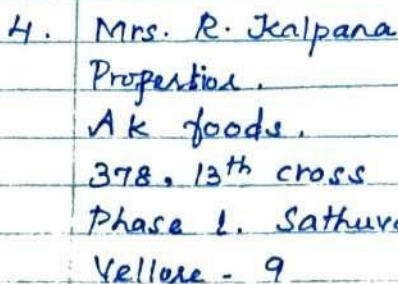 4. Mrs. R. Kalpana
Propertior.
AK foods.
378, 13th cross
Phase 1. Sathuva
Vellore - 9